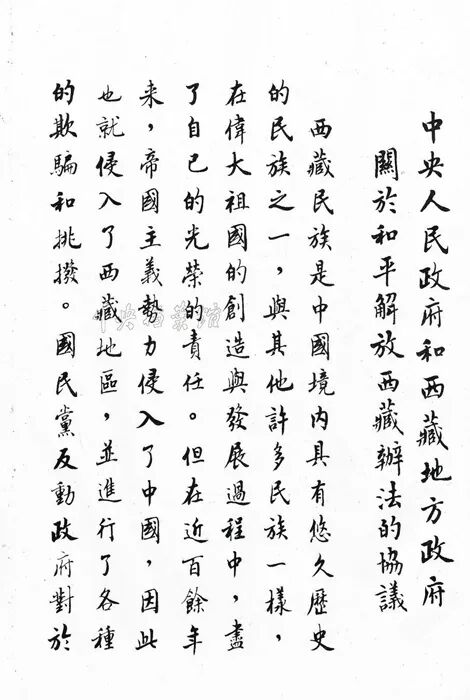 中央人民政府和西藏地方政府
關於和平解放西藏辦法的協議
西藏民族是中國境內具有悠久歷史
的民族之一，與其他許多民族一樣，
在偉大祖國的創造與發展過程中，盡
了自己的光榮的責任。但在近百餘年
來，帝國主義勢力侵入了中國，因此
也就侵入了西藏地區，並進行了各種
的欺騙和挑撥。國民黨反動政府對於
中央档案馆